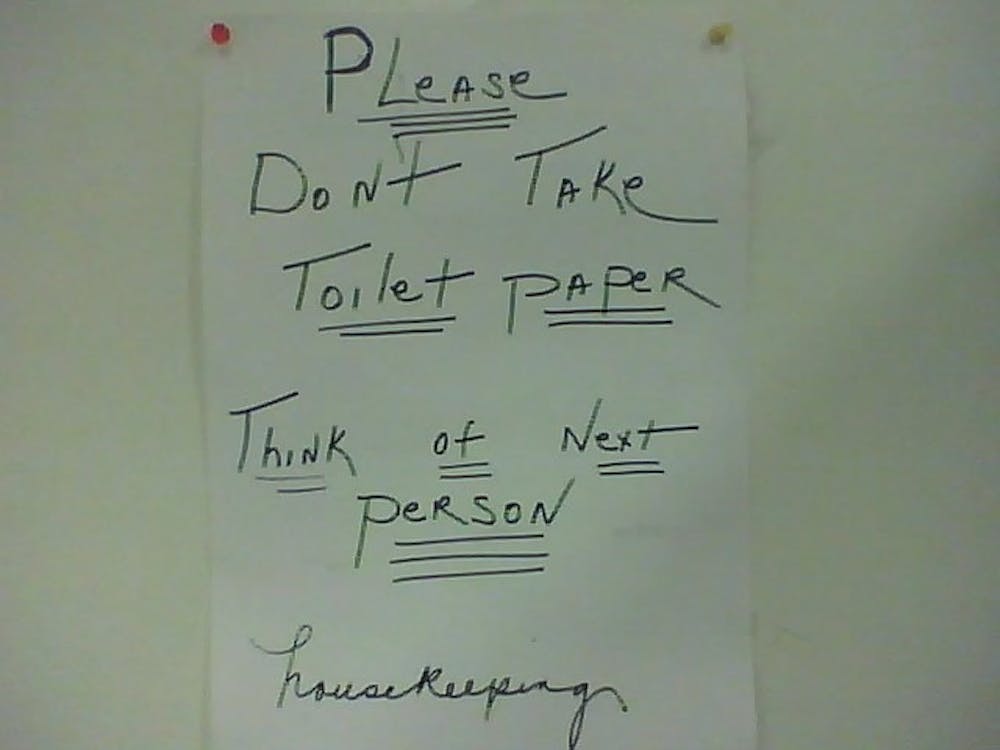 PLeASe
DoN't TAKe
Toilet PAPeR
ThiNK of Next
PeRSON
housekeeping